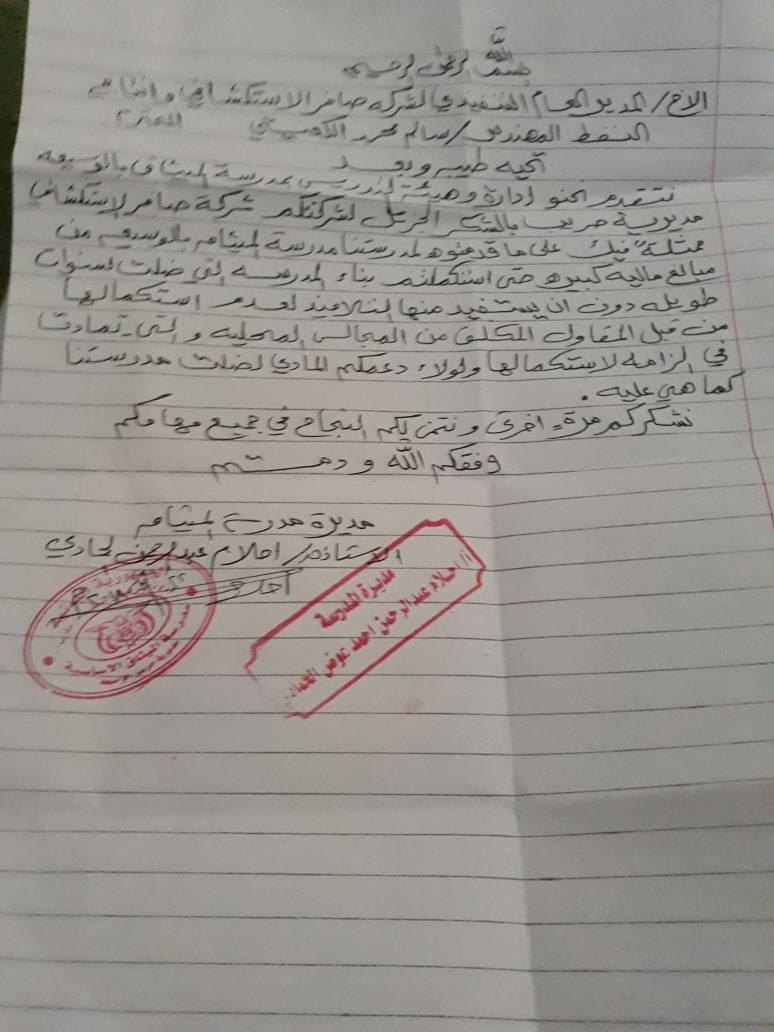 بسم الله الرحمن الرحيم
الاخ/ المدير العام التنفيذي لشركه صافر الاستكشافي وانتاج
النفط المهندس/ سالم محمد الكعيتي المحترم
تحيه طيبه وبعد
نتقدم نحنو ادارة وهيئة تدريس مدرسة الميثاق بالوسيعه
مديرية حريب بالشكر الجزيل لشركتكم شركة صافر لاستكشافي
ممثلة بك على ما قدمتوه لمدرستنا مدرسة الميثاق بالوسيعه من
مبالغ ماليه كبيره حتى استكملتم بناء المدرسه التي ضلت لسنوات
طويله دون ان يستفيد منها التلاميذ لعدم استكمالها
من قبل المقاول المكلف من المجالس المحليه والتي تمادت
في الزامه لاستكمالها ولولاء دعمكم المادي لضلت مدرستنا
كما هي عليه.
نشكركم مرة اخرى ونتمنى لكم النجاح في جميع مهامكم
وفقكم الله ودمتم
مديرة مدرسة الميثاق
الاستاذه/ احلام عبدالرحمن الحمادي
مديرة المدرسة
أ/ احلام عبدالرحمن احمد عوض الحمادي
مدرسة الميثاق الاساسية